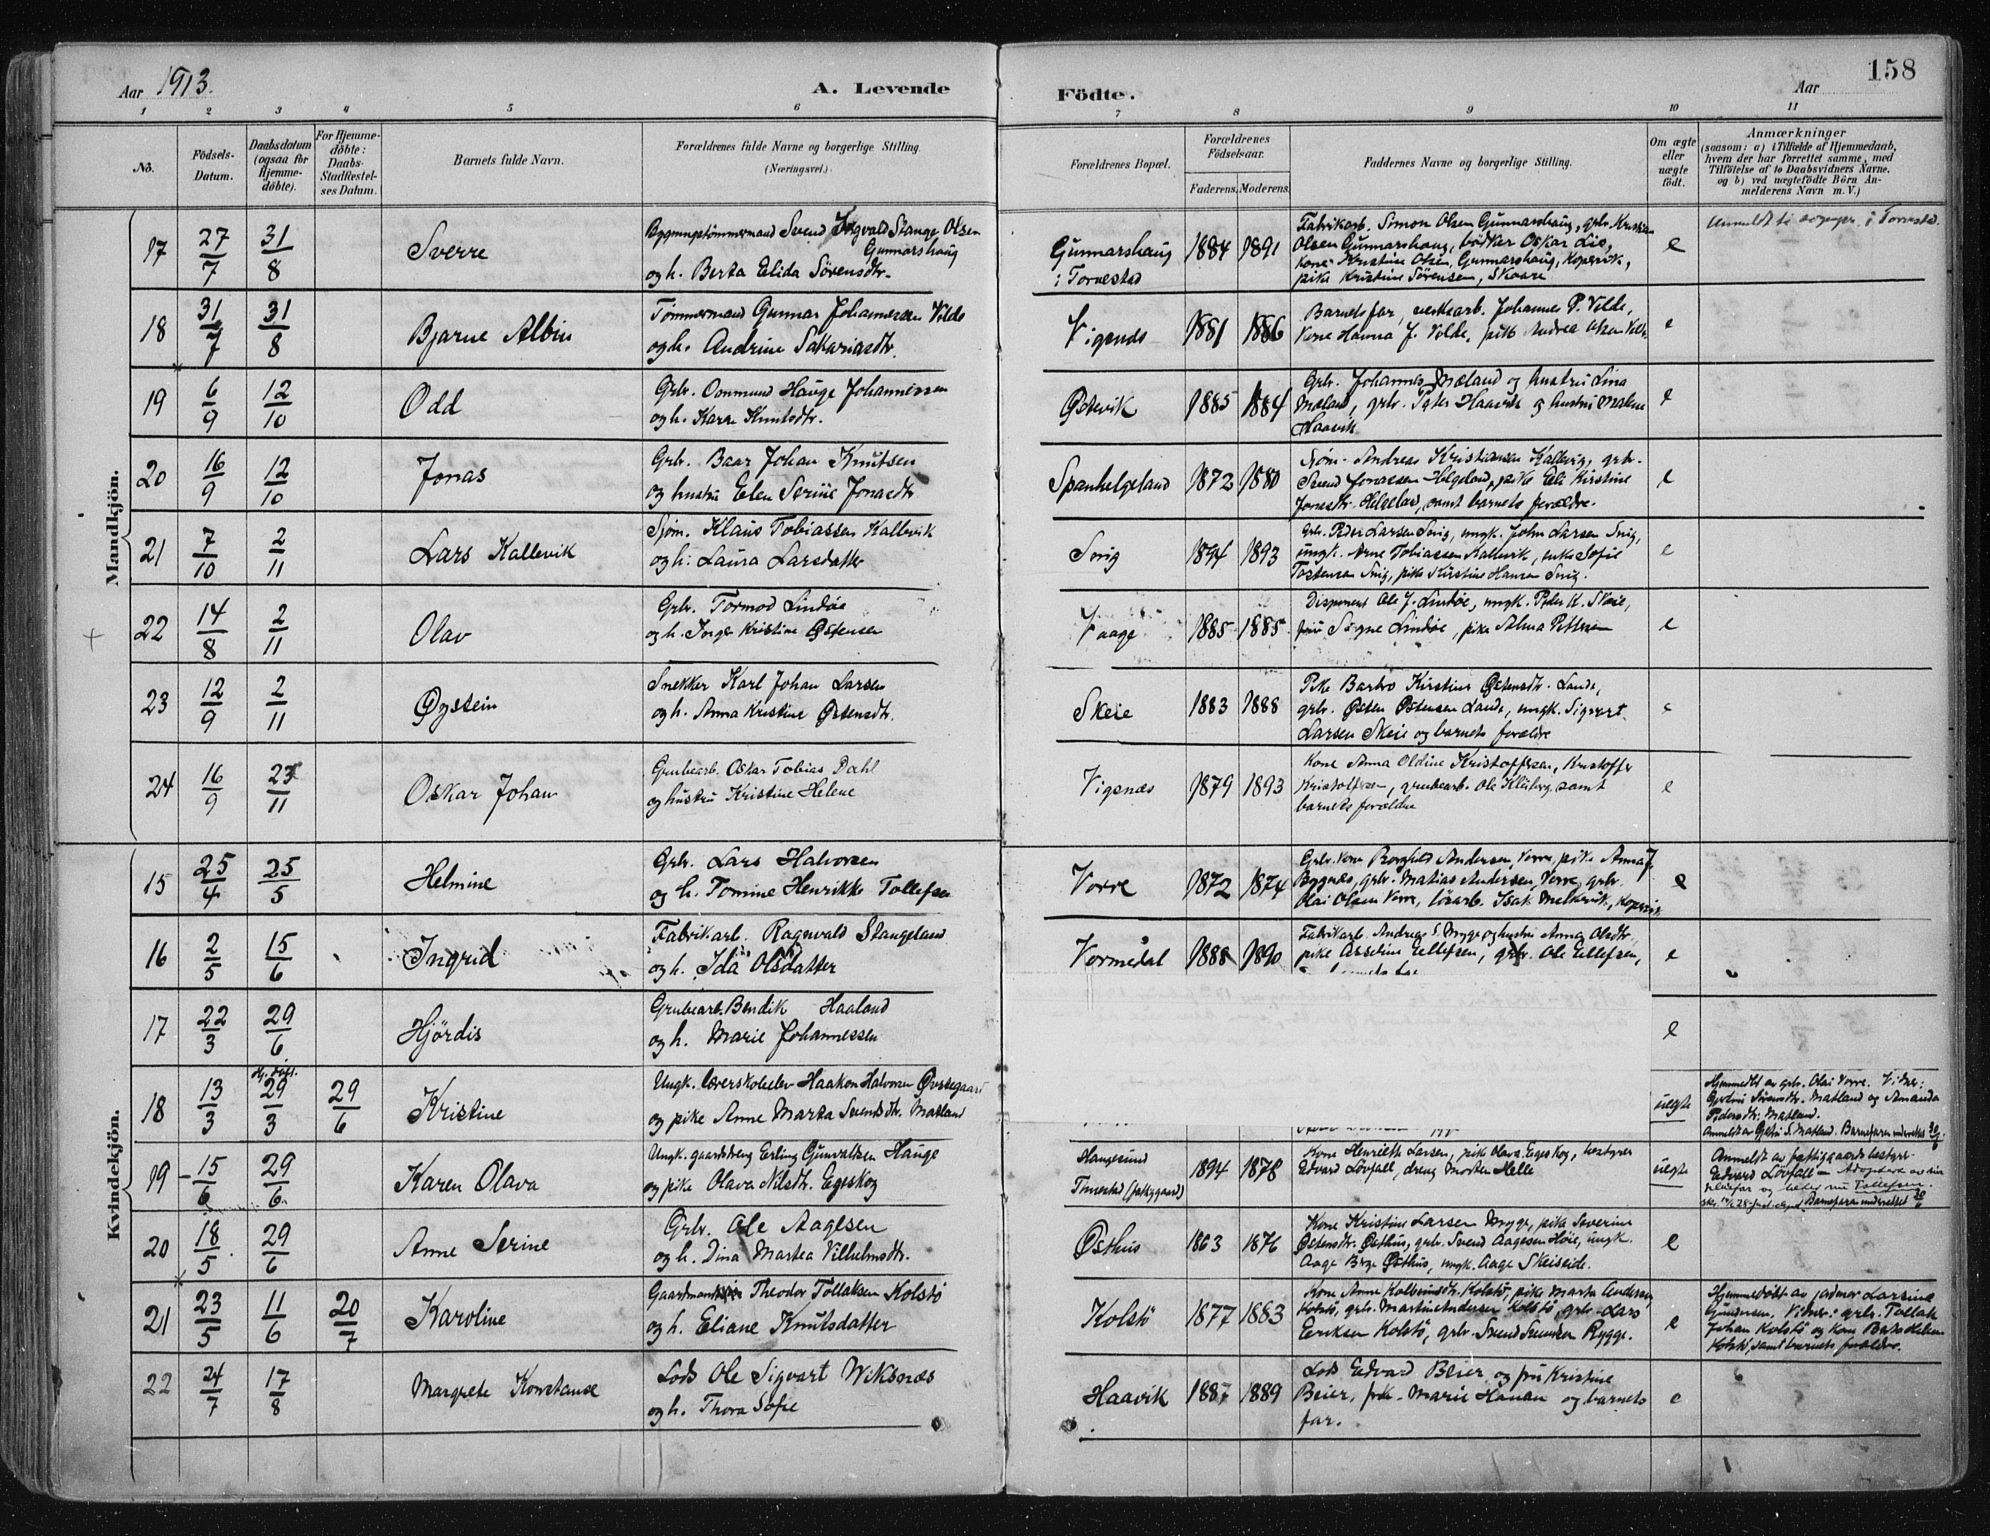 Aar 1913.
A. Levende
Födte.
Aar
158
1 2 3 4 5 6 7 8 9 10 11
No.
Födsels-
Datum.
Daabsdatum
(ogsaa for
Hjemme-
döbte).
For Hjemme-
döbte:
Daabs-
Stadfæstel-
ses Datum.
Barnets fulde Navn.
Forældrenes fulde Navne og borgerlige Stilling.
(Næringsvei.)
Forældrenes Bopæl.
Forældrenes
Födselsaar.
Faderens. Moderens.
Faddernes Navne og borgerlige Stilling.
Om ægte
eller
uægte
født.
Anmærkninger
(saasom: a) i Tilfælde af Hjemmedaab,
hvem der har forrettet samme, med
Tilföielse af to Daabsvidners Navne,
og b) ved uægtefödte Börn An-
melderens Navn m. V.)
Mandkjön.
17 27/7 31/8 Sverre
Bygningstømmermand Svend Ingvald Stange Olsen
Gunnarshaug
og h. Berta Elida Sørensdtr.
Gunnarshaug
i Torvestad
1884 1891
Fabrikarb. Simon Olsen Gunnarshaug, grbr. Kristian
Olsen Gunnarshaug, bødker Oskar Lie,
kone Kristine Olsen Gunnarshaug, Kopervik,
pike Kristine Sørensen, Skaare
e
Anmeldt til sognepr. i Torvestad.
18 31/7 31/8 Bjarne Albin
Tømmermand Gunnar Johannessen Velde
og h. Andrine Sakariasdtr.
Vigsnæs
1881 1886
Barnets far, Johannes P. Velde,
Kone Hanna J. Velde, pike Andrea Olsen
e
19 6/9 12/10 Odd
Grbr. Ommund Hauge Johannessen
og h. Karen Knutsdtr.
Østevik
1885 1884
Grbr. Johannes Mæland og hustru Lina
Mæland, grbr. Peter Haavik og hustru Malene
Haavik
e
20 16/9 12/10 Jonas
Grbr. Baar Johan Knutsen
og hustru Elen Serine Jonasdtr
Spanhelgeland
1872 1880
Sjøm. Andreas Kristiansen Kallevig, grbr.
Svend Jonassen Helgeland, pike Eli Kirstine
Jonasdtr. Helgeland, samt barnets forældre.
e
21 7/10 2/11 Lars Kallevik
Sjøm. Klaus Tobiassen Kallevik
og h. Laura Larsdatter
Snig
1894 1893
Grbr. Peder Larsen Snig, ungk. John Larsen Snig,
ungk. Arne Tobiassen Kallevik, enke Sofie
Tostensen Snig, pike Kirstine Hansen Snig.
e
22 14/8 2/11 Olav
Grbr. Tormod Lindøe
og h. Inger Kristine Østensen
Vaage
1885 1885
Disponent Ole J. Lindøe, ungk. Peder K. Skeie,
fru Signe Lindøe, pike Alma Pettersen
e
23 12/9 2/11 Øystein
Snekker Karl Johan Larsen
og h. Anna Kristine Østensdtr.
Skeie
1883 1888
Pike Barbro Kirstine Østensdtr. Lande,
grbr. Østen Østensen Lande, ungk. Sigvert
Larsen Skeie og barnets forældre
e
24 16/9 23/11 Oskar Johan
Grubearb. Oskar Tobias Dahl
og hustru Kristine Helene
Vigsnæs
1879 1893
Kone Anna Oldine Kristoffersen, Kristoffer
Kristoffersen, grubearb. Ole Kleiberg, samt
barnets forældre
e
Kvindekjön.
15 25/4 25/5 Helmine
Grbr. Lars Halvorsen
og h. Tomine Henrikke Tollefsen
Vorre
1872 1874
Grbr. kone Borghild Andersen, Vorre, pike Anna J
Bygnes, grbr. Matias Andersen, Vorre, grbr.
Olai Olsen Vorre, løsarb. Isak Melkevik, Kopervik
e
16 2/5 15/6 Ingrid
Fabrikarb. Ragnvald Stangeland
og h. Ida Olsdatter
Vormedal
1888 1890
Fabrikarb. Andreas S. Myge og hustru Anna Olsdtr.,
pike Asseline Ellefsen, grbr. Ole Ellefsen,
e
17 22/3 29/6 Hjørdis
Grubearb. Bendik Haaland
og h. Marie Johannessen
e
18 13/3 Hj. døbt. 29/3 29/6 Kristine
Ungk. lærerskoleelev Haakon Halvorsen Øvstegaard
og pike Anne Marta Svendsdtr. Matland
uegte
Hjemmedbt av grbr. Olai Vorre. Vidner:
Gjertru Sørensdtr. Matland og Amanda
Pedersdtr. Matland.
Anmeldt av Gjetru S. Matland. Barnefaren underrettet 30/6.
19 15/6 29/6 Karen Olava
Ungk. gaardsdreng Erling Gunvaldsen Hauge
og pike Olava Nilsdtr. Egeskog
Haugesund
Torvestad (fattiggaard)
1894 1878
Kone Henriette Larsen, pike Olava Egeskog, bestyrer
Edvard Løvfall, dreng Morten Helle
uegte
Anmeldt av fattiggaardsbestyrer
Edvard Løvfall – Adopteret av sin
og heter nu Tollefsen.
Barnefara underrettet 30/6
20 18/5 29/6 Anne Serine
Grbr. Ole Aagesen
og h. Dina Martea Vilhelmsdtr.
Østhus
1863 1876
Kone Kristine Larsen Myge, pike Severine
Østensdtr. Østhus, grbr. Svend Aagesen Høie, ungk.
Aage Birge Østhus, ungk. Aage Skeiseide.
e
21 23/5 11/6 20/7 Karoline
Gaardmand Theodor Tollaksen Kolstø
og h. Eliane Knutsdatter
Kolstø
1877 1883
Kone Anne Kolbeinsdtr. Kolstø, pike Marta Andersen
Kolstø, grbr. Martin Andersen Kolstø, grbr. Lars
Eriksen Kolstø, grbr. Svend Svendsen Rygge.
e
Hjemmedøbt av jordmor Larsine
Gundersen, Vidner: grbr. Tollak
Johan Kolstø og kone Berta Helene
Kolstø, samt barnets forældre.
22 24/7 17/8 Margrete Konstanse
Lods Ole Sigvart Wiksnæs
og h. Thora Sofie
Haavik
1887 1889
Lods Edvard Beier og fru Kristine
Beier, frk. Marie Hanan og barnets
far.
e